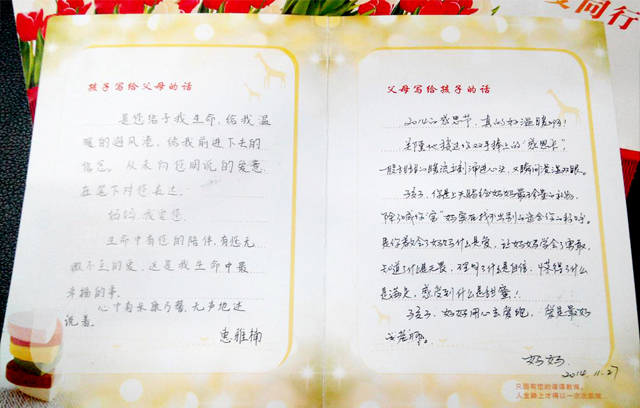 同行
孩子写给父母的话
是您给予我生命，给我温
暖的避风港，给我前进下去的
信念。从未向您明说的爱意
在笔下对您表达。
妈妈，我爱您
生命中有您的陪伴，有您无
微不至的爱，这是我生命中最
幸福的事。
心中有朵康乃馨，无声地述
说着。
惠雅楠
父母写给孩子的话
2014的感恩节，真的好温暖啊！
是懂地接过你双手捧上的“感恩卡”，
一股甜甜的暖流立刻沛进心头，又瞬间湿润双眼。
孩子，你是上天赐给妈妈最珍贵的礼物，
除了喊你“宝”妈实在找不出别的适合你的称呼。
是你教会了妈妈什么是爱，让妈妈学会了宽容，
知道了什么是无畏，不明了什么是自信，懂得了什么
是满足，感受到什么是甜蜜！
孩子，妈妈用心去爱你，爱是最好
的老师。
妈妈
2014.11.27
只因有您的谆谆教诲，
人生路上才得以一次次